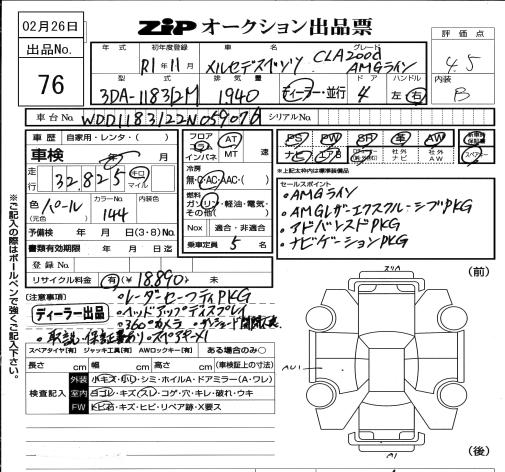 02月26日
ZIP オークション出品票
出品No.
76
評価点
4.5
内装
B
年式 初年度登録 車名 グレード
R1年11月 メルセデスベンツ CLA200d AMGライン
型式 排気量 ドア ハンドル
3DA-118312M 1940 ディーラー・並行 4 左・右
車台No. WDD1183122N059076 シリアルNo.
車歴 自家用・レンタ・( )
車検 年 月
走行 32,825 キロ マイル
色(元色) パール カラーNo. 144 内装色
予備検 年 月 日(3・8)Mo.
書類有効期限 年 月 日迄
登録No.
リサイクル料金 有(¥18,890)・無
フロア コラム インパネ AT MT 速
冷房 無・C・AC・AAC・( )
燃料 ガソリン・軽油・電気・その他( )
Nox 適合・非適合
乗車定員 5 名
PS PW SR 革 AW 新車時保証書
ナビ エアB 社外ナビ 社外AW スペアキー
*上記太枠内は装備機能
セールスポイント
・AMGライン
・AMGレザーエクスクルーシブPKG
・アドバンスドPKG
・ナビゲーションPKG
(注意事項) ・レーダーセーフティPKG
ディーラー出品 ・ヘッドアップディスプレイ
・360°カメラ
・取説・保証書あり・スペアキー×1
スペアタイヤ[有] ジャッキ工具[有] AWロックキー[有] ある場合のみ○
長さ cm 幅 cm 高さ cm (車検証上の寸法)
検査記入
外装 小キズ・小凹・シミ・ホイルA・ドアミラー(A・ワレ)
室内 ヨゴレ・キズ・スレ・コゲ・穴・キレ・破れ・ウキ
FW トビ石・キズ・ヒビ・リペア跡・X要ス
※ご記入の際はボールペンで強くご記入下さい。
(前)
AU1
A1
(後)